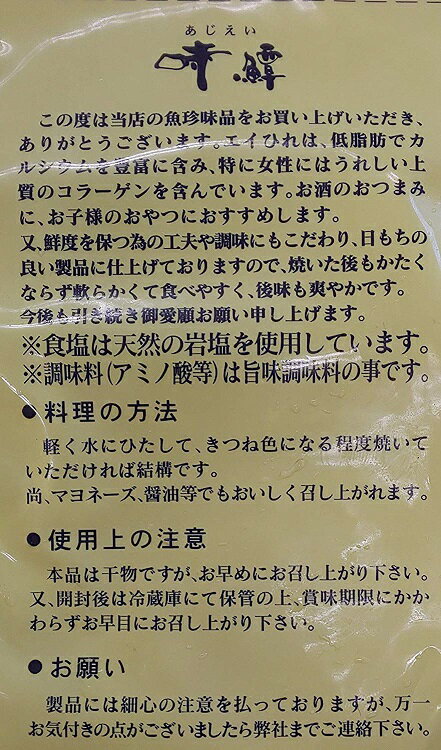 あじえい
味鱏
この度は当店の魚珍味品をお買い上げいただき、
ありがとうございます。エイひれは、低脂肪でカ
ルシウムを豊富に含み、特に女性にはうれしい上
質のコラーゲンを含んでいます。お酒のおつまみ
に、お子様のおやつにおすすめします。
又、鮮度を保つ為の工夫や調味にもこだわり、日もちの
良い製品に仕上げておりますので、焼いた後もかたく
ならず軟らかくて食べやすく、後味も爽やかです。
今後も引き続き御愛顧お願い申し上げます。
※食塩は天然の岩塩を使用しています。
※調味料(アミノ酸等)は旨味調味料の事です。
●料理の方法
軽く水にひたして、きつね色になる程度焼いて
いただければ結構です。
尚、マヨネーズ、醤油等でもおいしく召し上がれます。
●使用上の注意
本品は干物ですが、お早めにお召し上がり下さい。
又、開封後は冷蔵庫にて保管の上、賞味期限にかか
わらずお早目にお召し上がり下さい。
●お願い
製品には細心の注意を払っておりますが、万一
お気付きの点がございましたら弊社までご連絡下さい。